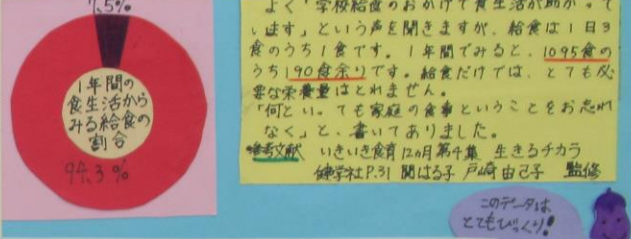 7.5%
1年間の
食生活から
みる給食の
割合
94.3%
よく「学校給食のおかげで食生活が助かって
います」という声を聞きますが、給食は1日3
食のうち1食です。1年間でみると、1095食の
うち190食余りです。給食だけでは、とても必
要な栄養量はとれません。
「何といっても家庭の食事ということをお忘れ
なく」と、書いてありました。
参考文献 いきいき食育12ヵ月第4集 生きるチカラ
健学社P.31 関はる子 戸崎由己子 監修
このデータは
とてもびっくり!